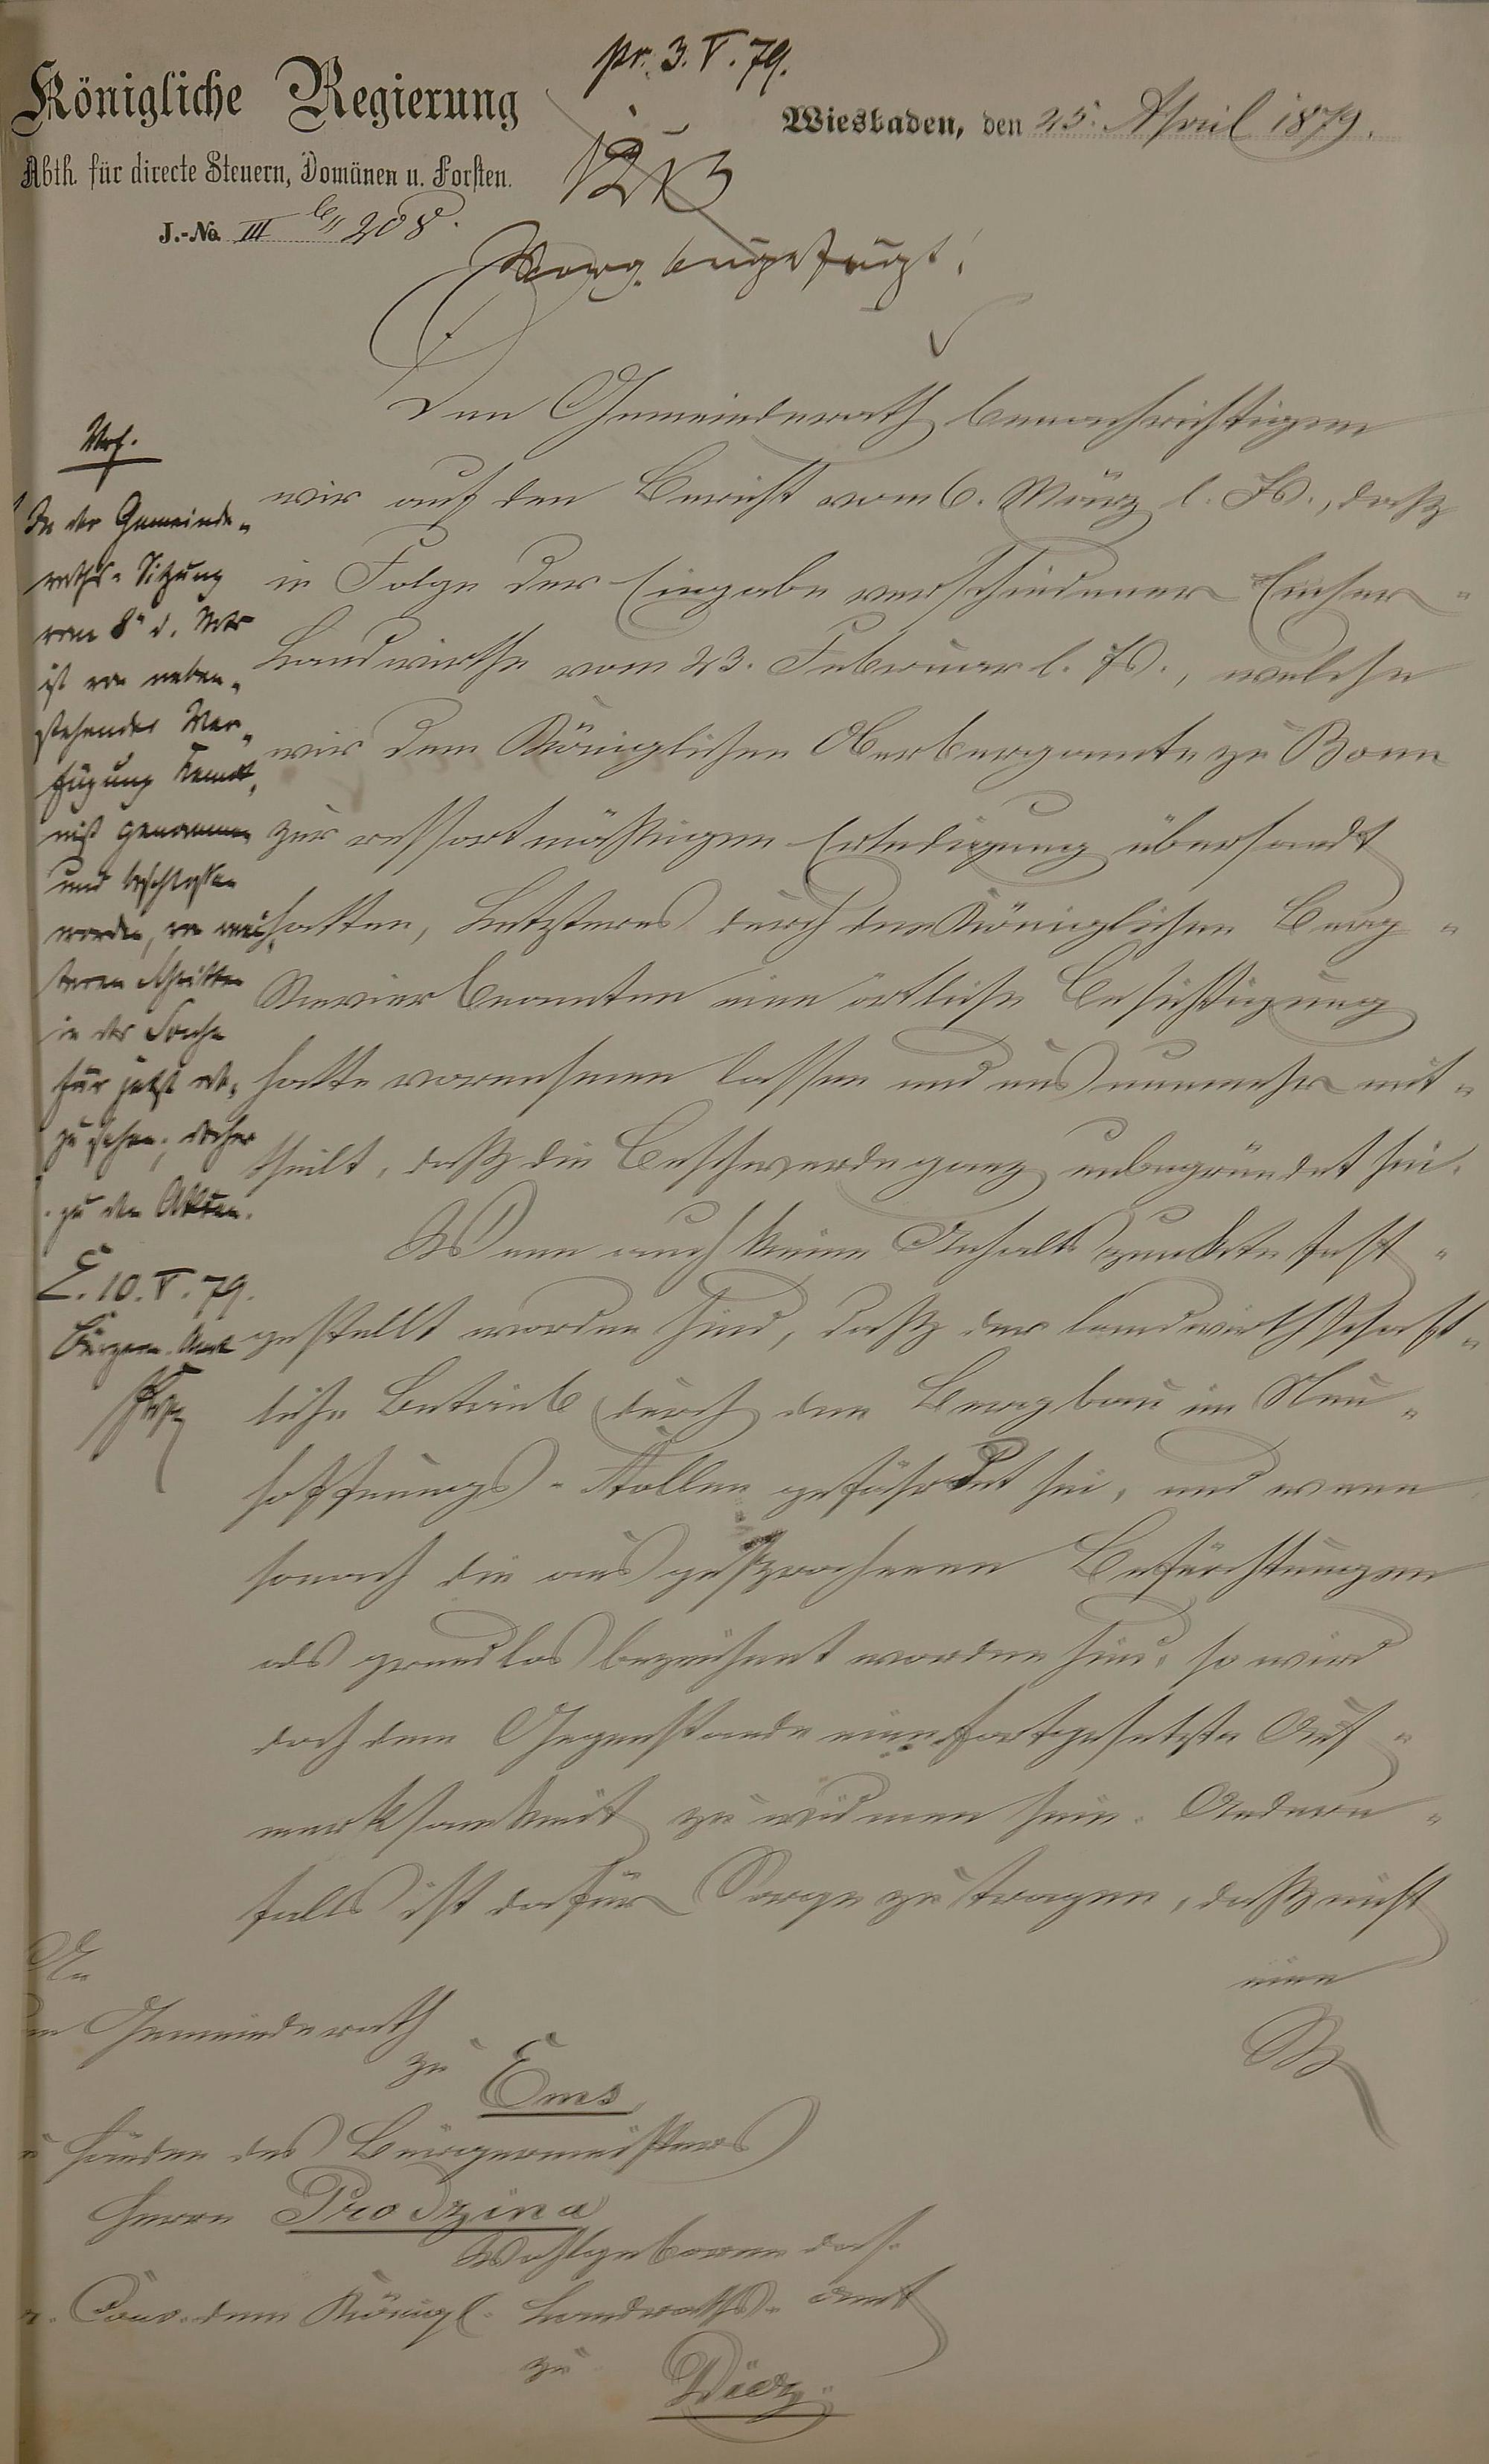 pr. 3. V. 79.
Königliche Regierung
Wiesbaden, den 25. April 1879.
Abth. für directe Steuern, Domänen u. Forsten.
1213
J.-No. III 208.
Vorg. beigefügt!
Dem Gemeinderath benachrichtigen
wir auf den Bericht vom 6. März l. Js., daß
in Folge der Eingabe verschiedener Emser-
Landwirthe vom 23. Februar l. Js., welche
wir dem Königlichen Oberbergamte zu Bonn
zur ressortmäßigen Erledigung übersandt
hatten, Letzteres durch den Königlichen Berg-
Revierbeamten eine örtliche Besichtigung
hatte vornehmen lassen und uns nunmehr mit-
theilt, daß die Beschwerde ganz unbegründet sei.
Wenn auch keine Anhaltspunkte fest-
gestellt worden sind, daß der landwirthschaft-
liche Betrieb durch den Bergbau im Neu-
hoffnungs-Stollen gefährdet sei, und wenn
sonach die ausgesprochenen Befürchtungen
als grundlos bezeichnet worden sind, so wird
doch dem Gegenstande eine fortgesetzte Auf-
merksamkeit zu widmen sein. Andern-
falls ist dafür Sorge zu tragen, daß nicht
eine
Vrf.
In der Gemeinde-
raths-Sitzung
vom 8n d. Mts
ist von neben-
stehender Ver-
fügung Kennt-
niß genommen
und beschlossen
worden, von wei-
teren Schritten
in der Sache
für jetzt ab-
zusehen; daher
zu den Akten.
E. 10. V. 79.
Bürgerm. Amt
An
den Gemeinderath
zu Ems
zu Händen des Bürgermeisters
Herrn Prodzina
Wohlgeboren das.
d. Couv. dem Königl. Landraths-Amt
zu Diez.